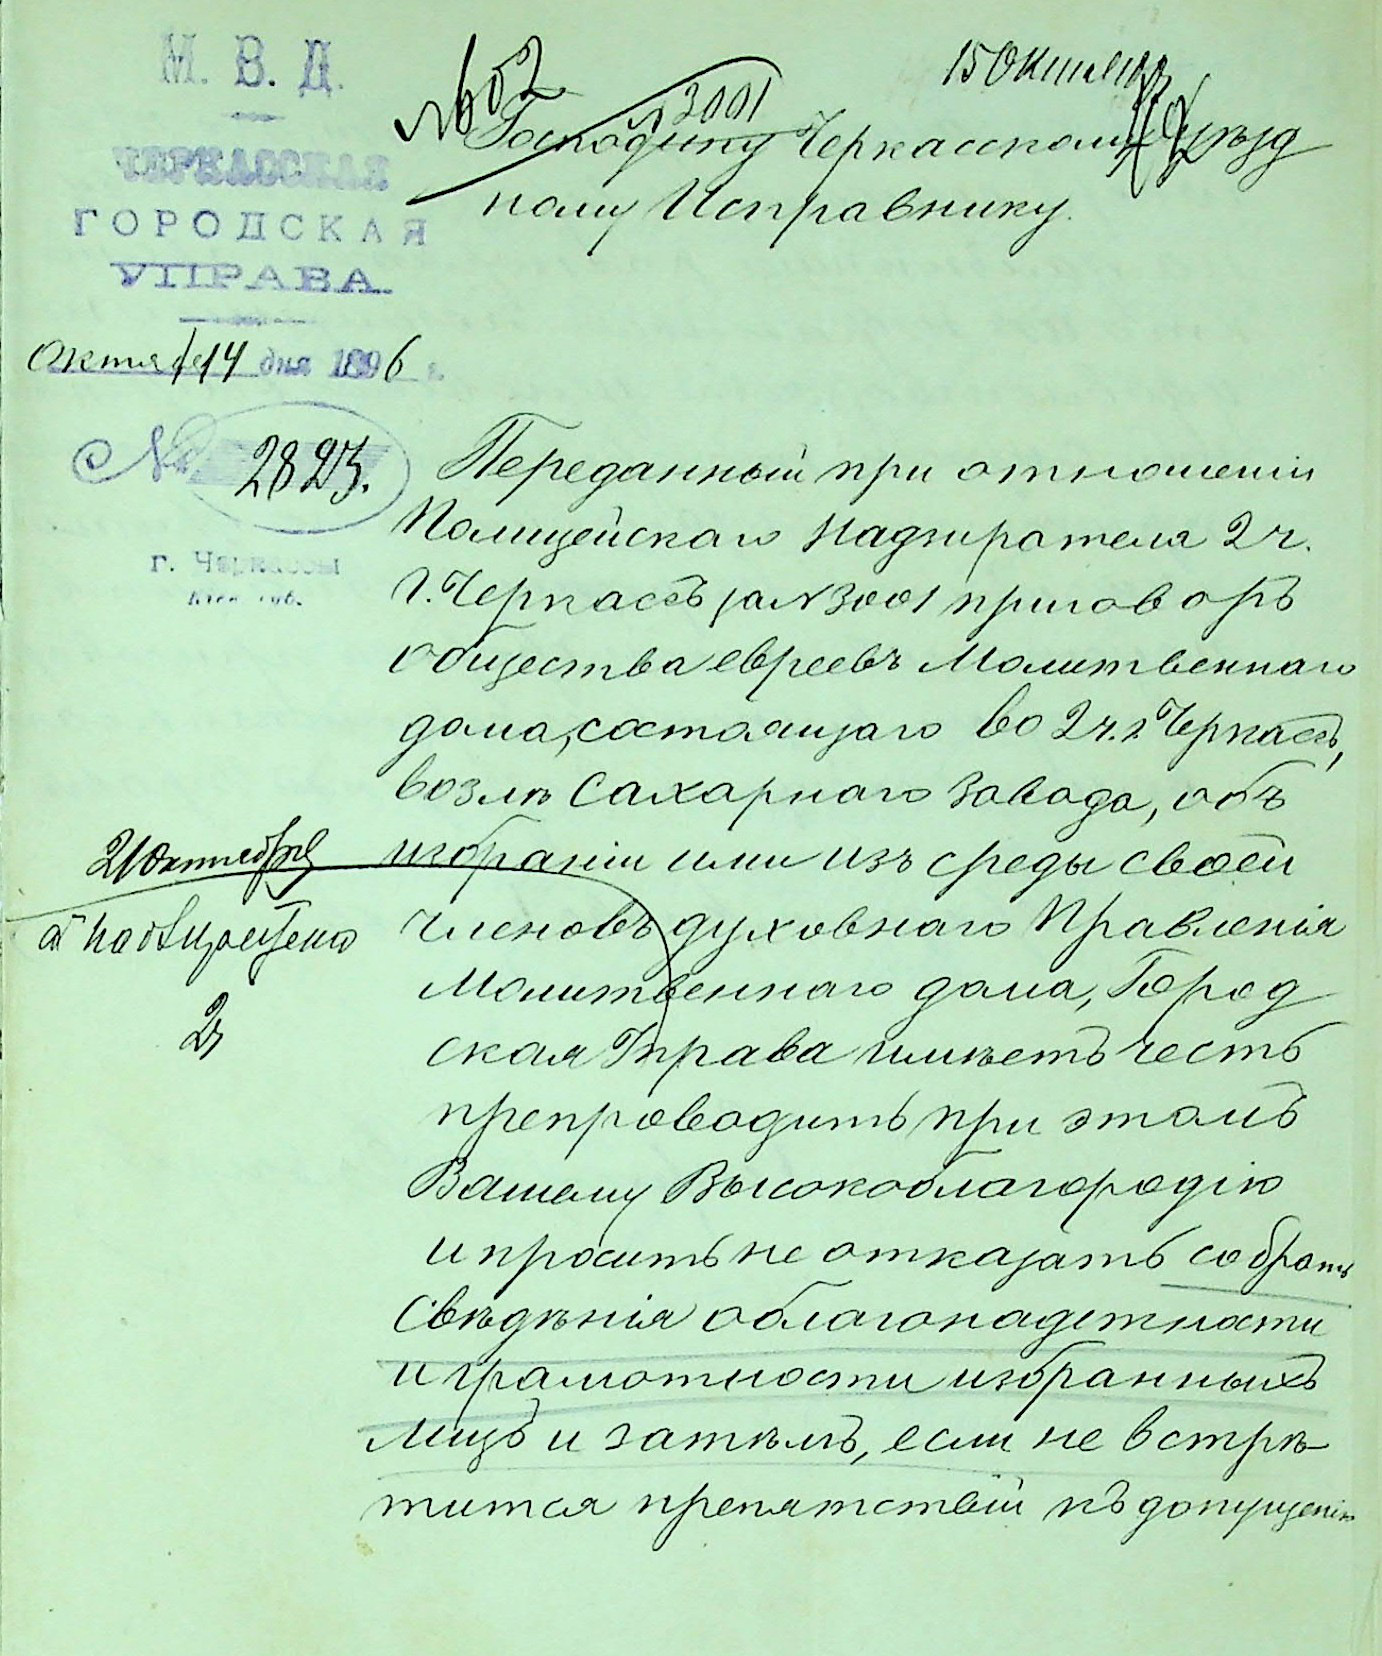 М. В. Д.
ЧЕРКАССКАЯ
ГОРОДСКАЯ
УПРАВА.
Октября 14 дня 1896 г.
№ 2823.
г. Черкассы
Кіев. губ.
15 Октября
№ 3001
Господину Черкасскому Уѣзд
ному Исправнику.
Переданный при отношеніи
Полицейскаго Надзирателя 2 ч.
г. Черкассъ за № 3001 приговоръ
общества евреевъ Молитвеннаго
дома, состоящаго во 2 ч. г. Черкассъ,
возлѣ Сахарнаго Завода, объ
избраніи ими изъ среды своей
членовъ духовнаго Правленія
Молитвеннаго дома, Город
ская Управа имѣетъ честь
препроводить при этомъ
Вашему Высокоблагородію
и просить не отказать собрать
Свѣдѣнія о благонадежности
и грамотности избранныхъ
лицъ и затѣмъ, если не встрѣ-
тится препятствій къ допущенію
21 Октября
2